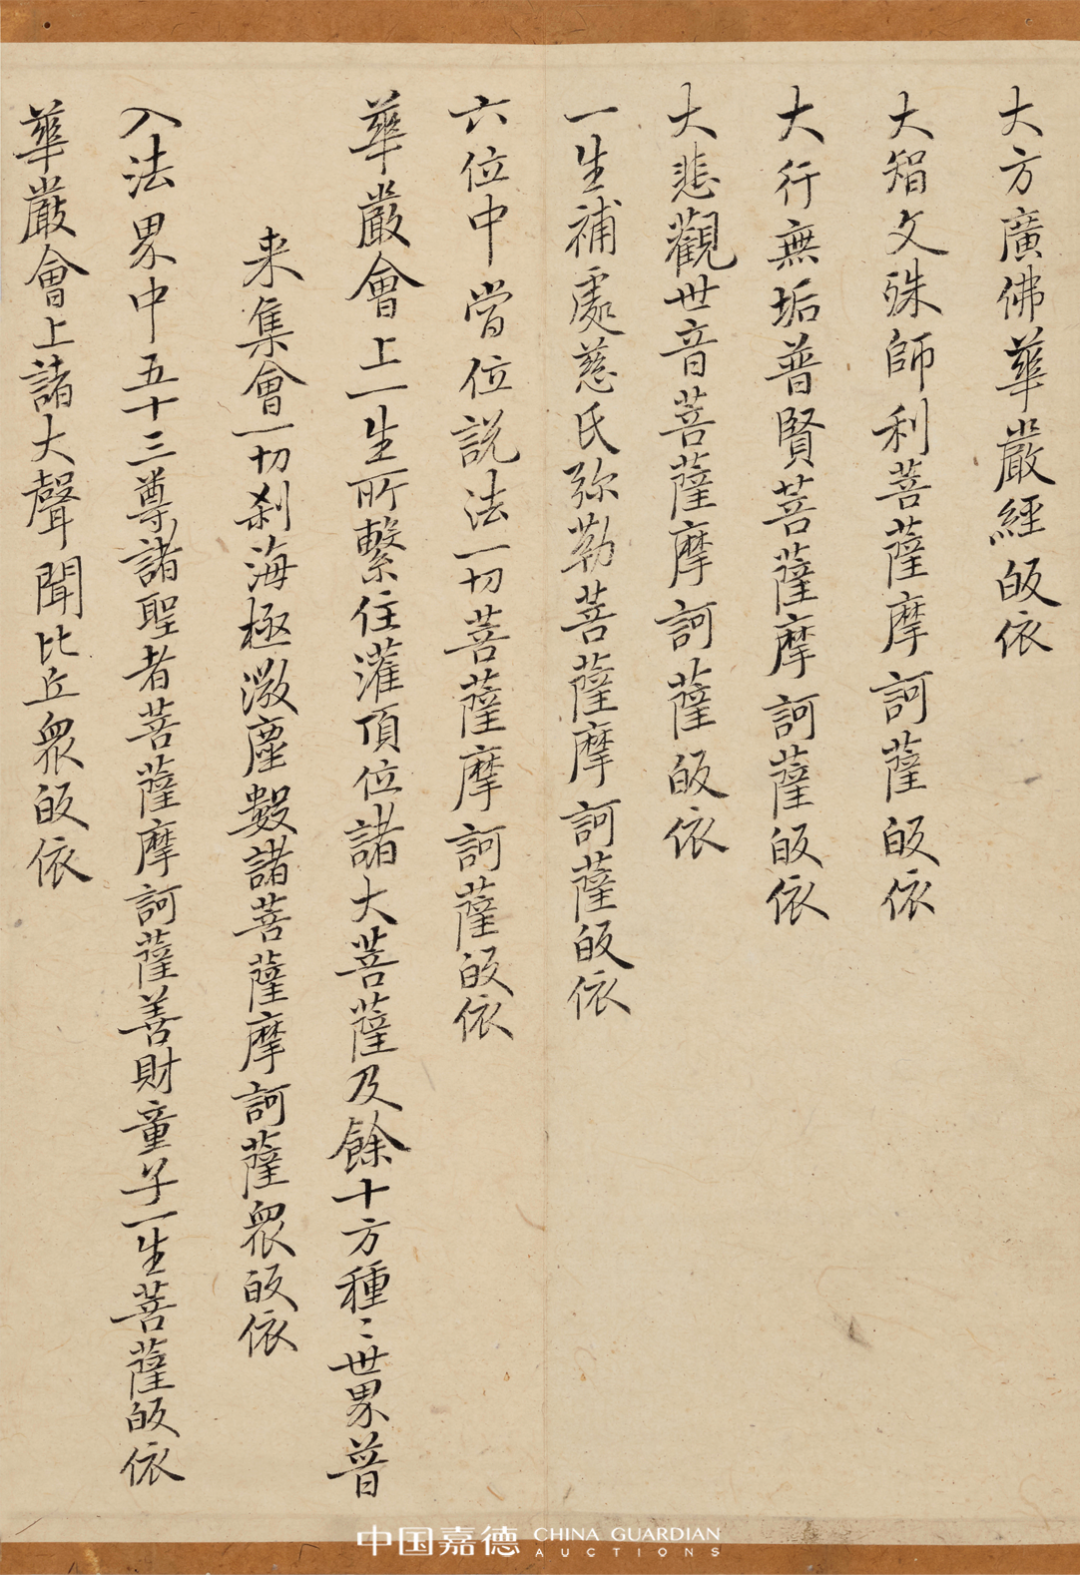 大方廣佛華嚴經皈依
大智文殊師利菩薩摩訶薩皈依
大行無垢普賢菩薩摩訶薩皈依
大悲觀世音菩薩摩訶薩皈依
一生補處慈氏弥勒菩薩摩訶薩皈依
六位中當位説法一切菩薩摩訶薩皈依
華嚴會上一生所繫住灌頂位諸大菩薩及餘十方種〻世界普
来集會一切刹海極微塵數諸菩薩摩訶薩眾皈依
入法界中五十三尊諸聖者菩薩摩訶薩善財童子一生菩薩皈依
華嚴會上諸大聲聞比丘眾皈依
中国嘉德 CHINA GUARDIAN AUCTIONS